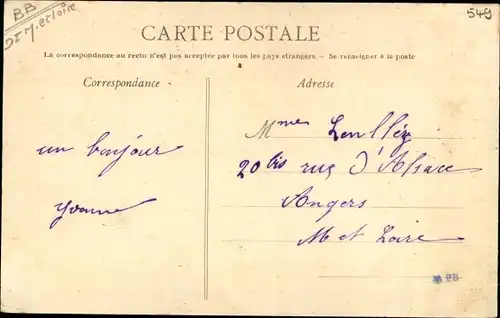 BB
Dt M. et Loire
549
CARTE POSTALE
La correspondance au recto n'est pas acceptée par tous les pays étrangers. — Se renseigner à la poste
Correspondance
Adresse
un bonjour
Yvonne
Mme
20 bis rue d'Alsace
Angers
M et Loire
PB